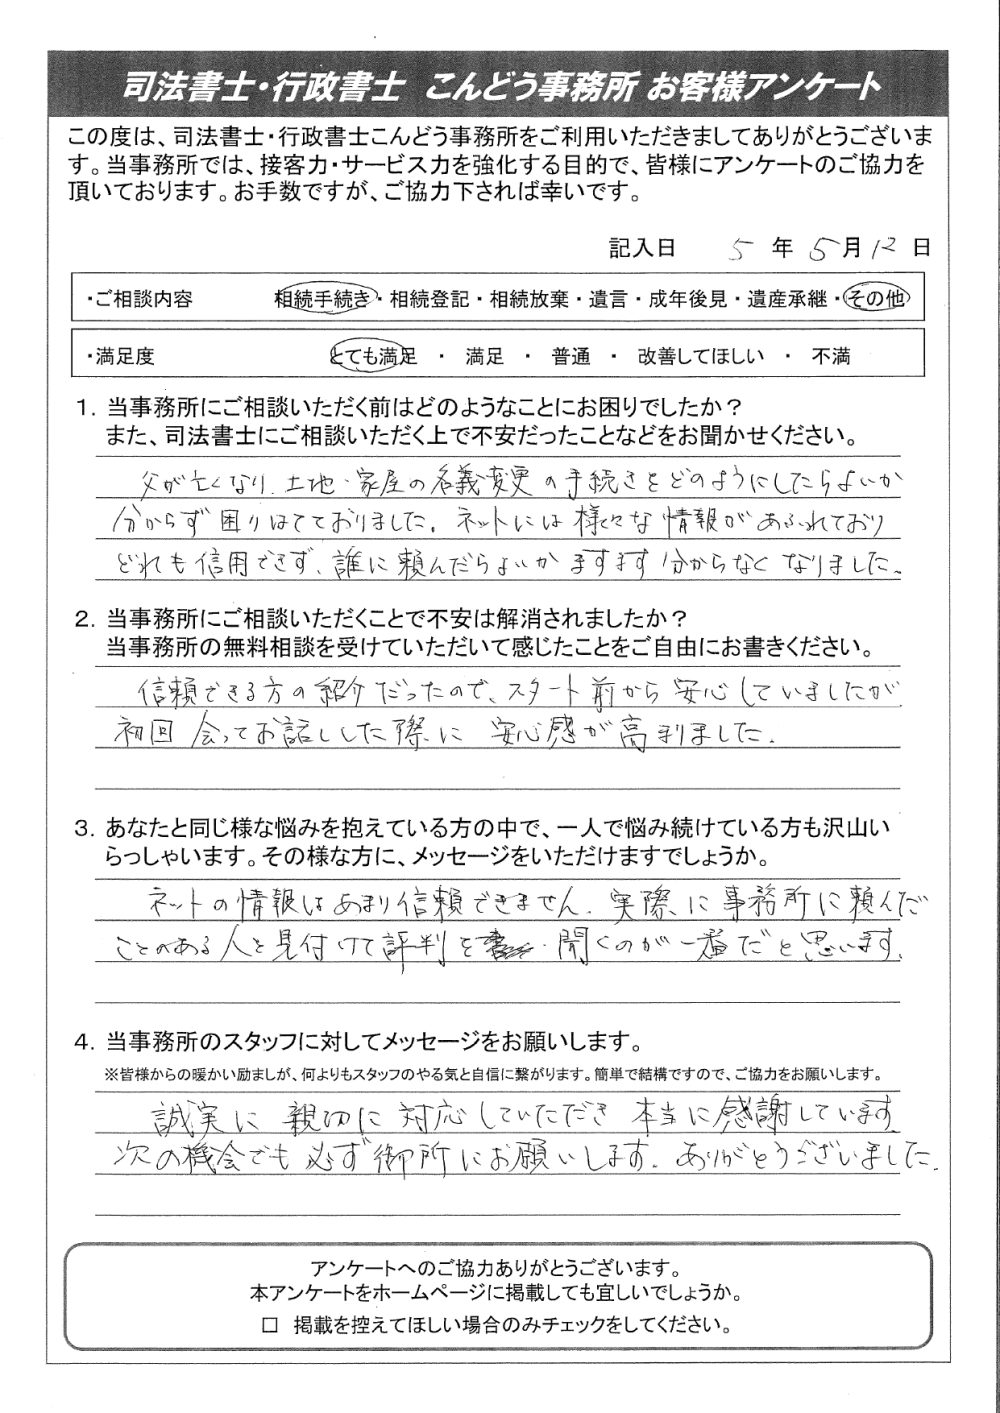 司法書士・行政書士 こんどう事務所 お客様アンケート
この度は、司法書士・行政書士こんどう事務所をご利用いただきましてありがとうございま
す。当事務所では、接客力・サービス力を強化する目的で、皆様にアンケートのご協力を
頂いております。お手数ですが、ご協力下されば幸いです。
記入日 5 年 5 月 12 日
・ご相談内容 相続手続き・相続登記・相続放棄・遺言・成年後見・遺産承継・その他
・満足度 とても満足 ・ 満足 ・ 普通 ・ 改善してほしい ・ 不満
1. 当事務所にご相談いただく前はどのようなことにお困りでしたか?
また、司法書士にご相談いただく上で不安だったことなどをお聞かせください。
父が亡くなり、土地・家屋の名義変更の手続きをどのようにしたらよいか
分からず困りはてておりました。ネットには様々な情報があふれており
どれも信用できず、誰に頼んだらよいかますます分からなくなりました。
2. 当事務所にご相談いただくことで不安は解消されましたか?
当事務所の無料相談を受けていただいて感じたことをご自由にお書きください。
信頼できる方の紹介だったので、スタート前から安心していましたが
初回会ってお話しした際に安心感が高まりました。
3. あなたと同じ様な悩みを抱えている方の中で、一人で悩み続けている方も沢山い
らっしゃいます。その様な方に、メッセージをいただけますでしょうか。
ネットの情報はあまり信頼できません。実際に事務所に頼んだ
ことのある人を見付けて評判を聞くのが一番だと思います。
4. 当事務所のスタッフに対してメッセージをお願いします。
※皆様からの暖かい励ましが、何よりもスタッフのやる気と自信に繋がります。簡単で結構ですので、ご協力をお願いします。
誠実に親切に対応していただき本当に感謝しています。
次の機会でも必ず御所にお願いします。ありがとうございました。
アンケートへのご協力ありがとうございます。
本アンケートをホームページに掲載しても宜しいでしょうか。
□ 掲載を控えてほしい場合のみチェックをしてください。